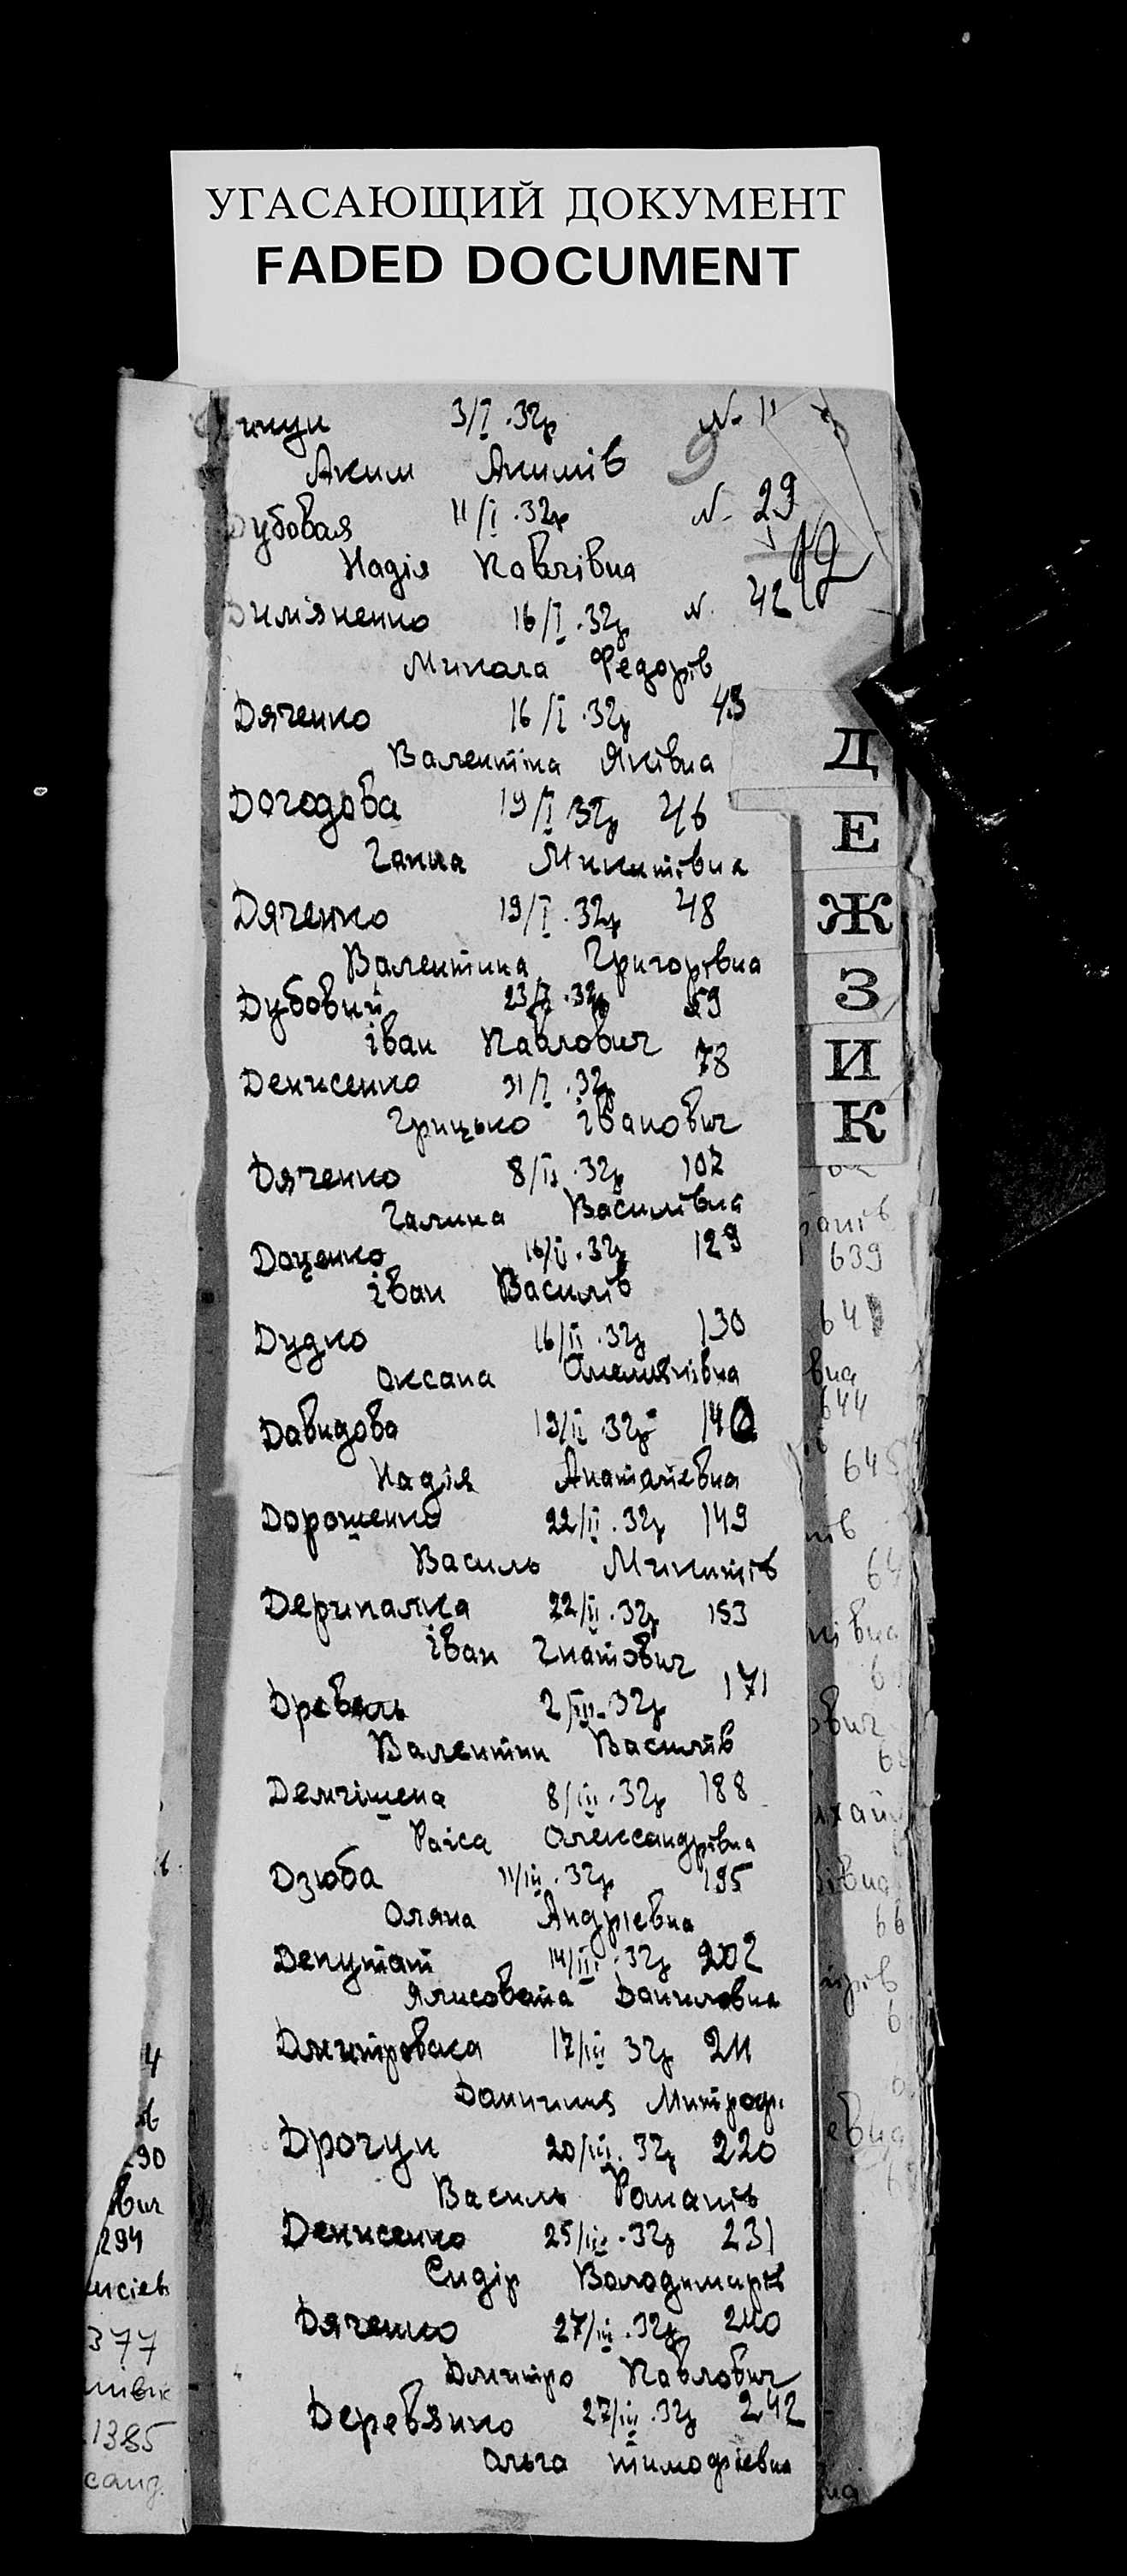 УГАСАЮЩИЙ ДОКУМЕНТ
FADED DOCUMENT
3/I .32р N. 11
Аким Акимів 9
Дубовая 11/I .32р N. 29
Надія Павлівна 12
Дим'яненко 16/I .32р N. 42
Микола Федорів
Дяченко 16/I .32р 43
Валентіна Яківна
Догодова 19/I 32р 46
Ганна Микитівна
Дяченко 19/I .32р 48
Валентина Григорівна
Дубовий 23/I .32р 59
Іван Павлович
Денисенко 31/I .32р 78
Грицько Іванович
Дяченко 8/II .32р 107
Галина Василівна
Доценко 16/II .32р 129
Іван Василів
Дудко 16/II .32р 130
Оксана Омелянівна
Давидова 19/II .32р 140
Надія Анатолієвна
Дорошенко 22/II .32р 149
Василь Микитів
Дерипалка 22/II .32р 153
Іван Гнатович
Древаль 2/III .32р 171
Валентин Василів
8/III .32р 188
Раїса Олександрівна
Дзюба 11/III .32р 195
Оляна Андрієвна
Депутат 14/III .32р 202
Ялисовета Даниловна
17/III 32р 211
Митроф.
Дрочун 20/III .32р 220
Василь Романів
Денисенко 25/III .32р 231
Сидір Володимирів
Дяченко 27/III .32р 240
Дмитро Павлович
Дерев'янко 27/III .32р 242
Ольга Тимофієвна
Д
Е
Ж
З
И
К
639
641
вна
644
645
ів
івна
ович
хай
івна
66
евна
4
90
вич
294
377
1385
санд.